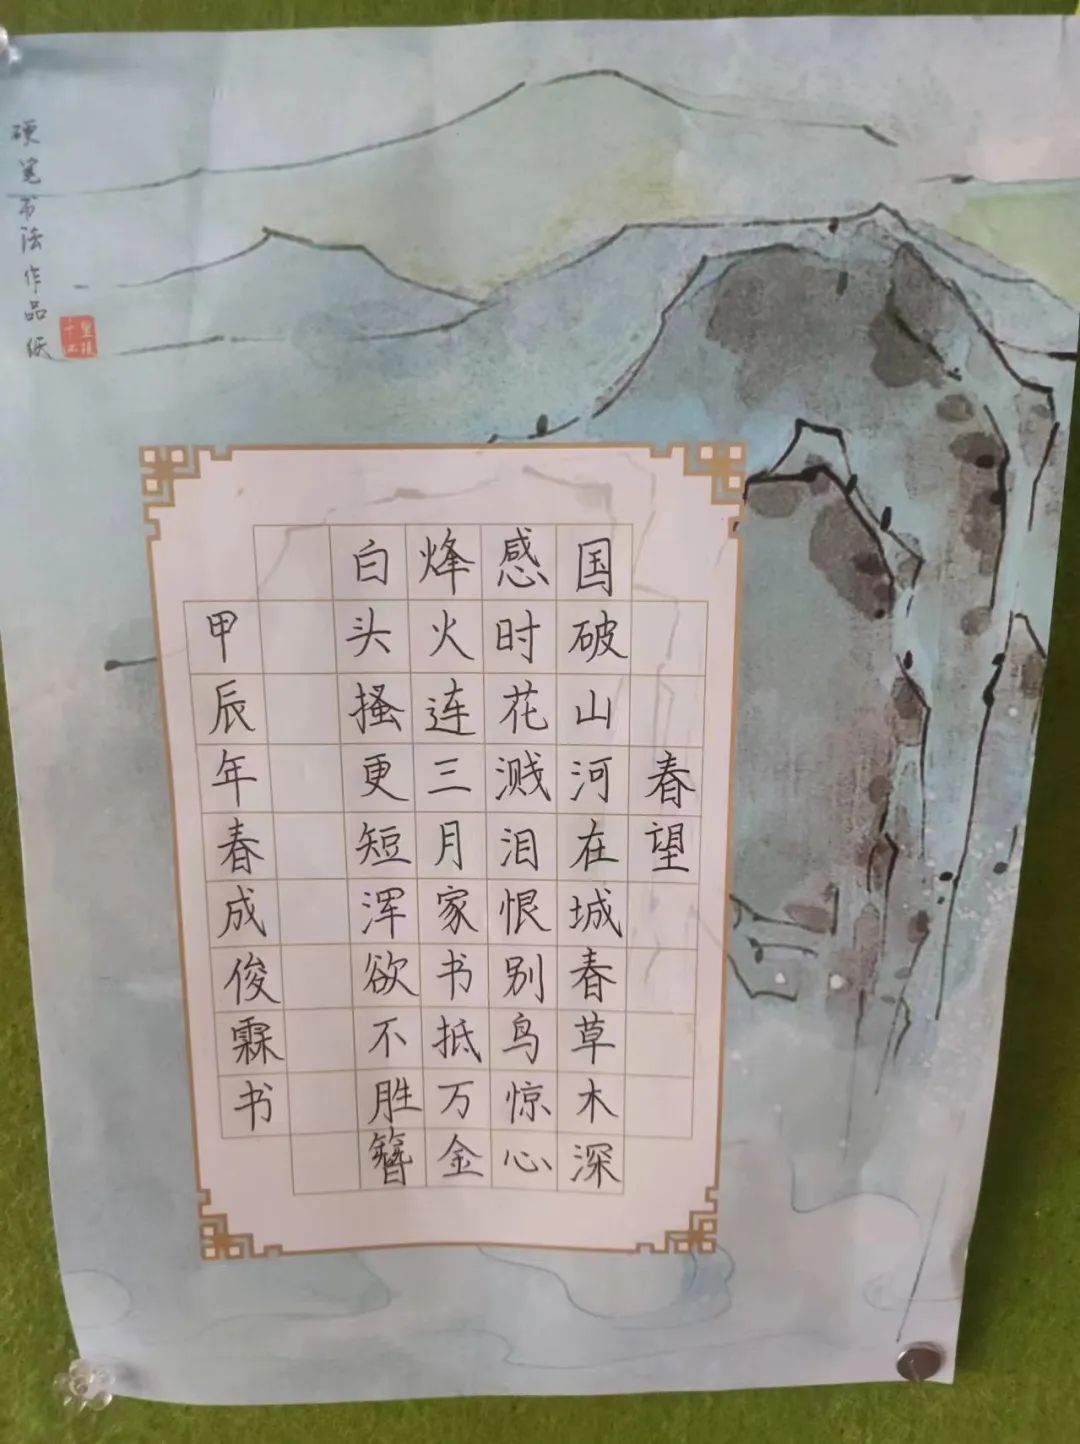 春望
国破山河在城春草木深
感时花溅泪恨别鸟惊心
烽火连三月家书抵万金
白头搔更短浑欲不胜簪
甲辰年春成俊霖书
硬笔书法作品纸